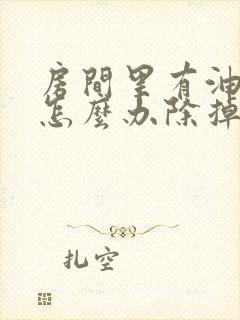 房間里有油
怎麼办除掉
扎空